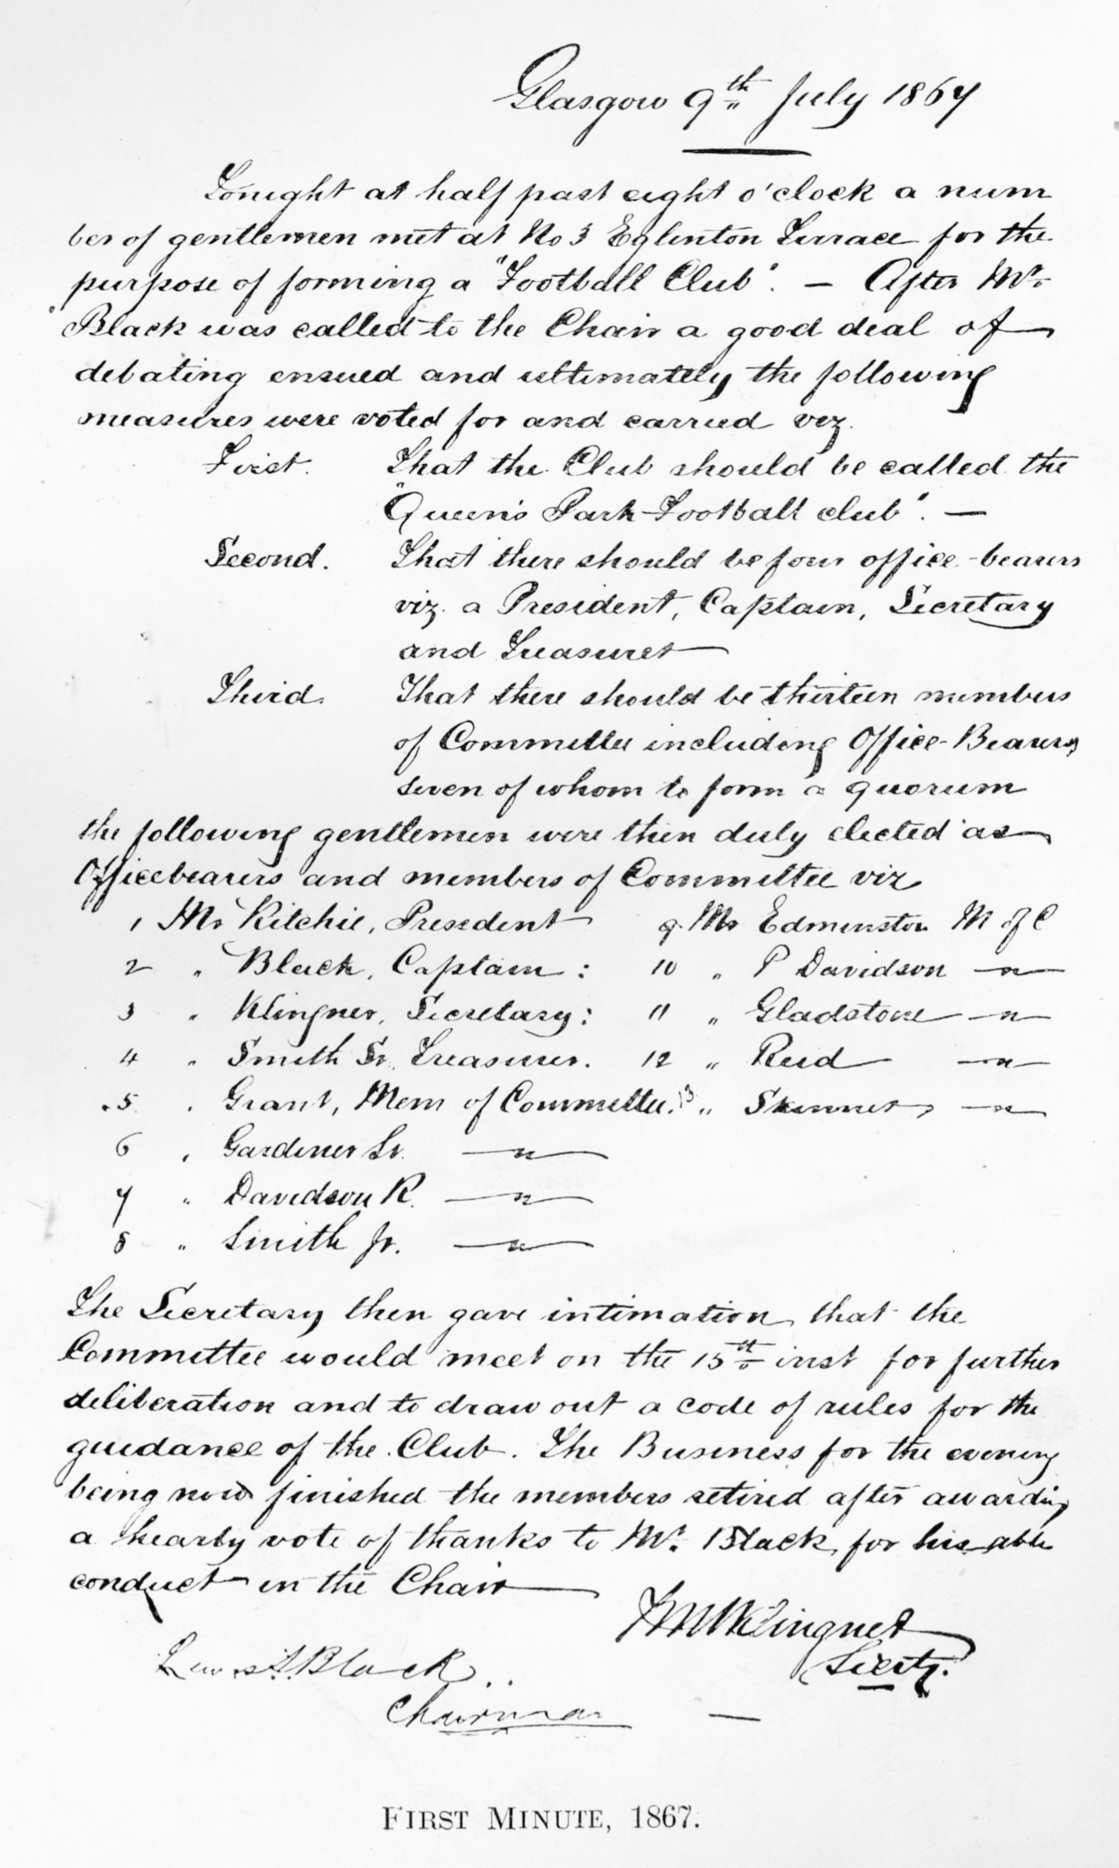 Glasgow 9th July 1867
Tonight at half past eight o'clock a num
ber of gentlemen met at No 3 Eglinton Terrace for the
purpose of forming a "Football Club". — After Mr.
Black was called to the Chair a good deal of
debating ensued and ultimately the following
measures were voted for and carried viz.
First. That the Club should be called the
"Queen's Park Football club". —
Second. That there should be four office-bearers
viz. a President, Captain, Secretary
and Treasurer
Third. That there should be thirteen members
of Committee including Office-Bearers
seven of whom to form a quorum
the following gentlemen were then duly elected as
Officebearers and members of Committee viz
1 Mr Ritchie, President 9. Mr Edmenston M of C
2 " Black, Captain: 10 " P Davidson — " —
3 " Klingner, Secretary: 11 " Gladstone — " —
4 " Smith Sr. Treasurer. 12 " Reid — " —
5 " Grant, Mem of Committee. 13 " Skinner, — " —
6 " Gardiner Sr. — " —
7 " Davidson R. — " —
8 " Smith Jr. — " —
The Secretary then gave intimation that the
Committee would meet on the 15th inst for further
deliberation and to draw out a code of rules for the
guidance of the Club. The Business for the evening
being now finished the members retired after awarding
a hearty vote of thanks to Mr. Black, for his able
conduct in the Chair
Klingner
Secty.
Lewis S. Black
Chairman —
FIRST MINUTE, 1867.